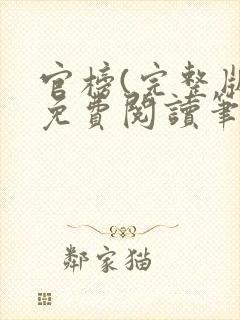 官榜(完整版
免費閱讀筆
鄰家猫